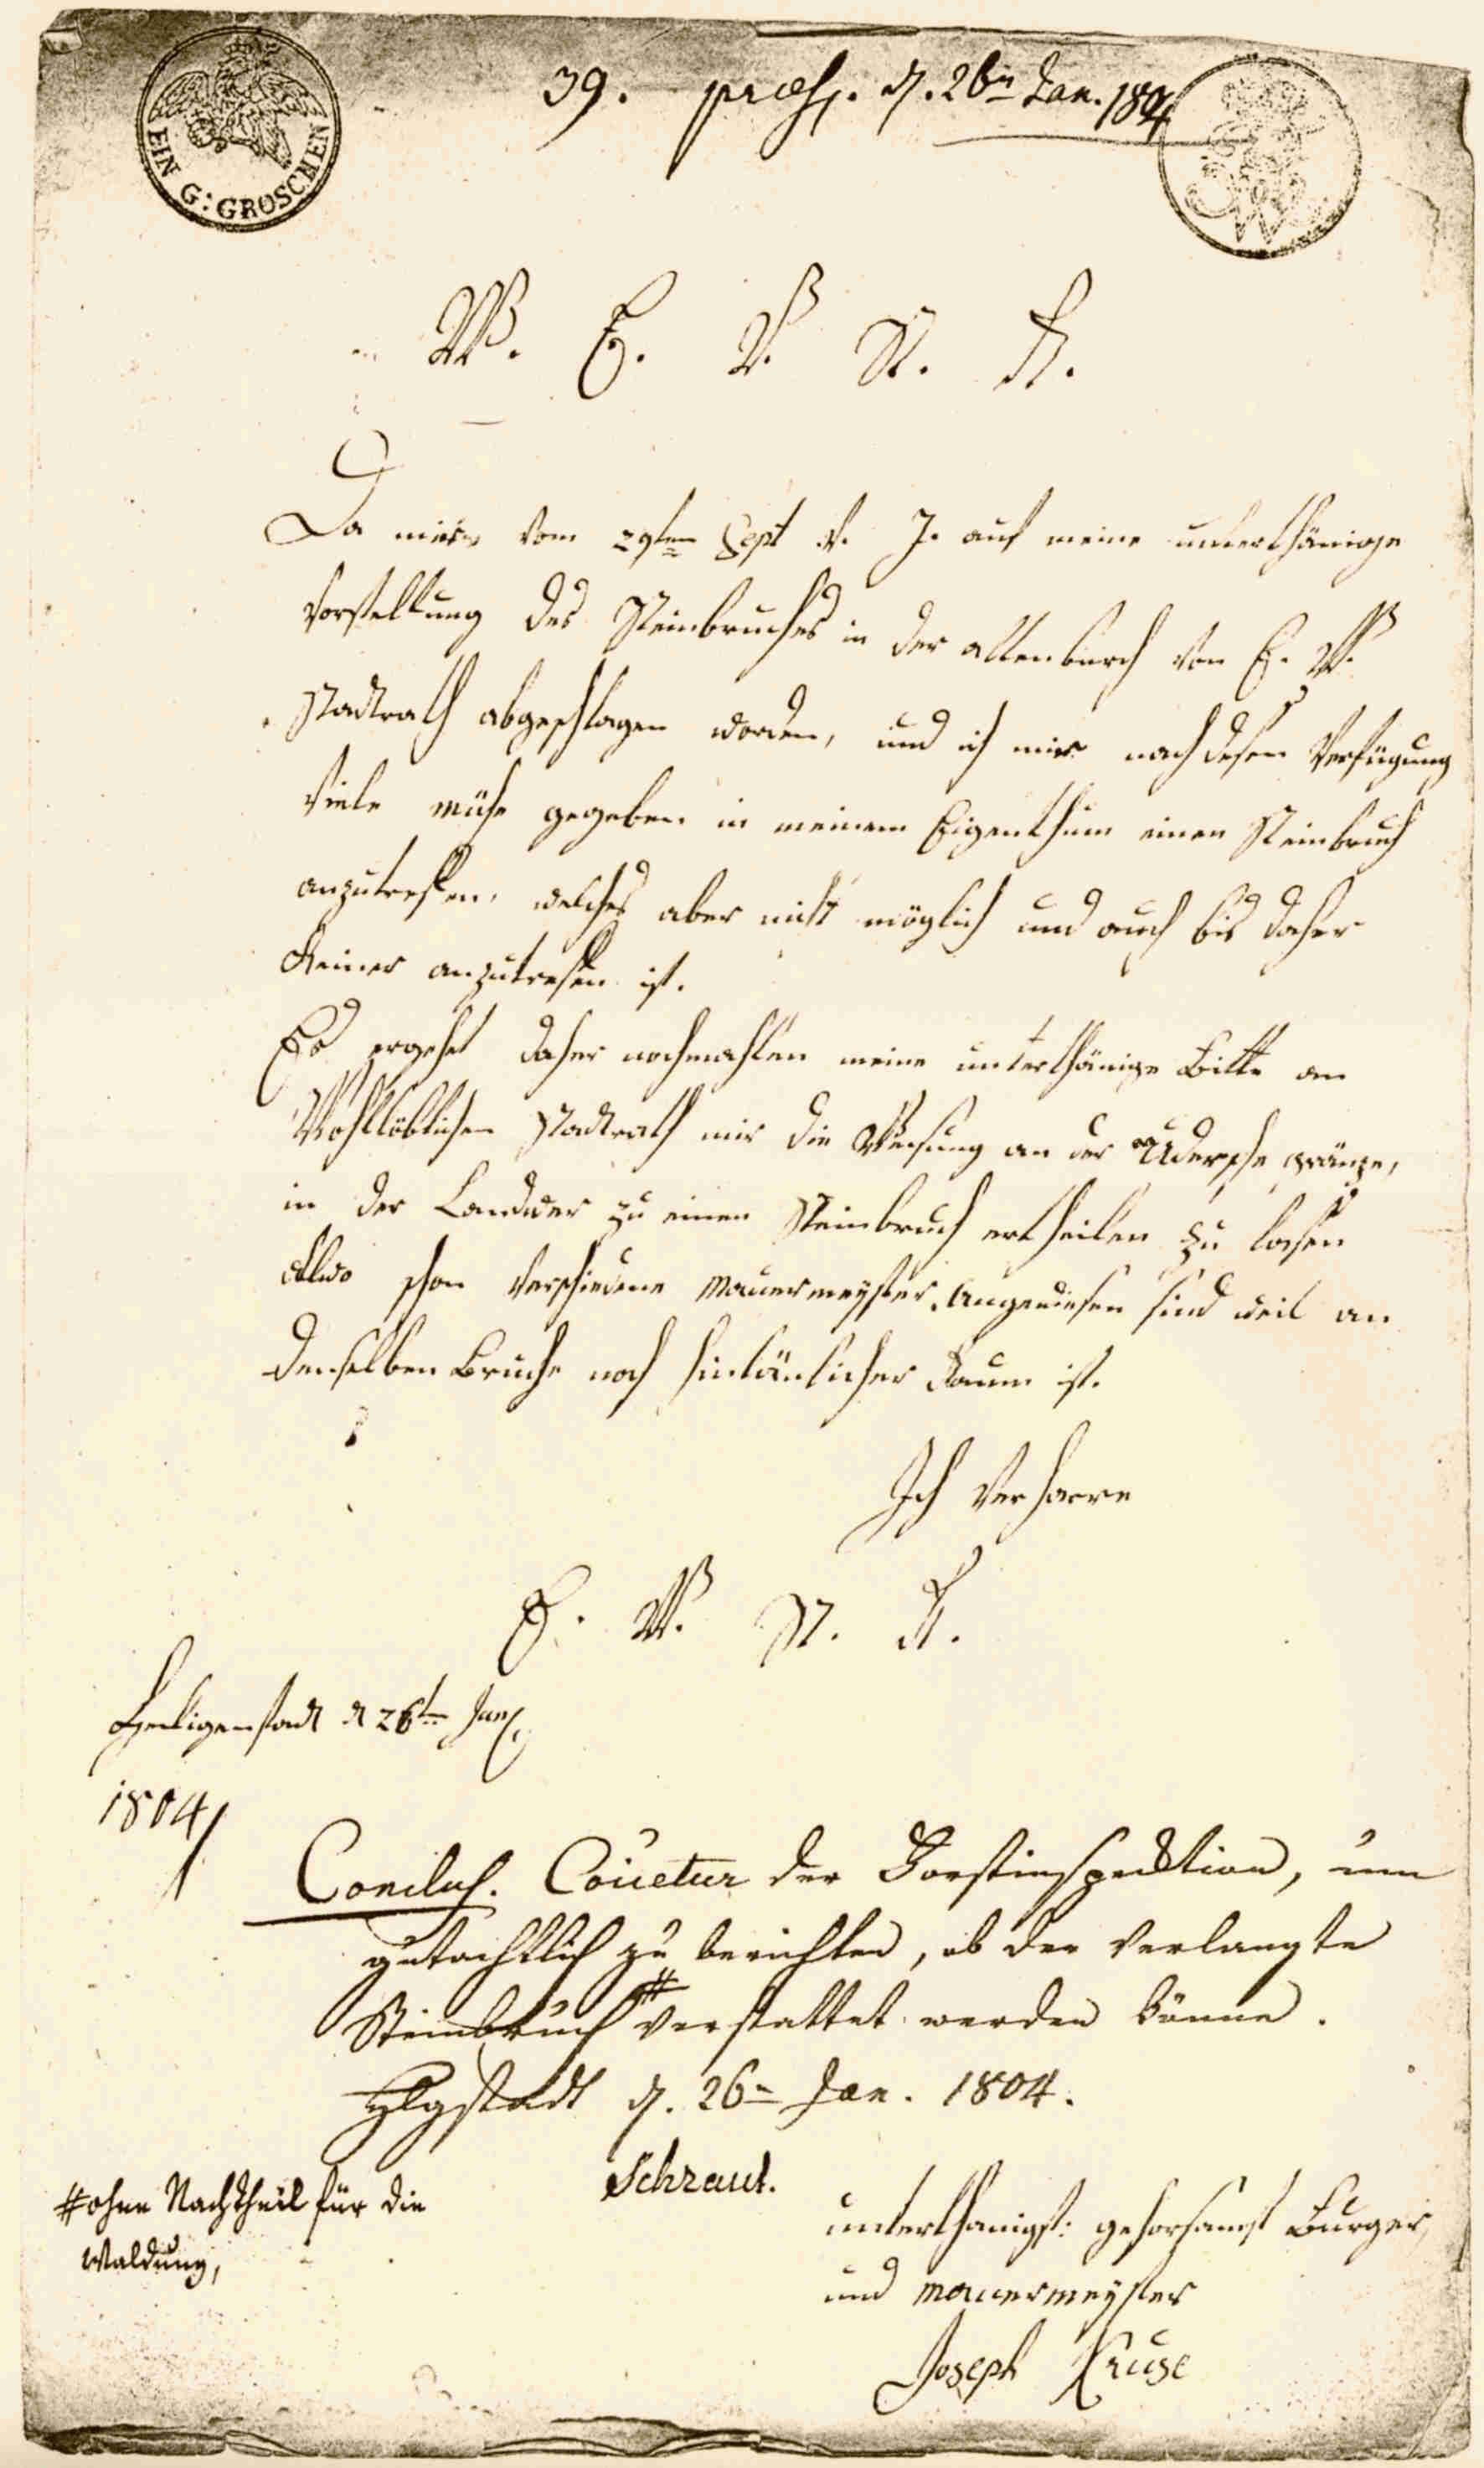 EIN G:GROSCHEN
39. praes. d. 26n Jan. 1804
W. E. V. St. R.
Da mir vom 29ten Sept v. J. auf meine unterthänige
Vorstellung des Steinbruches in der altenburch von E. W.
Stadtrath abgeschlagen worden, und ich mir nach desen Verfügung
viele mühe gegeben in meinem Eigenthum einen Steinbruch
anzutrefen, welches aber nicht möglich und auch bis daher
Keiner anzutrefen ist.
Es ergehet daher nochmahlen meine unterthänige Bitte an
Wohllöblichen Stadtrath mir die Weisung an der Udersche gränze,
in der Landwer zu einen Steinbruch ertheilen zu lasen
Alwo schon Verschiedene Mauermeyster Angewiesen sind weil an
denselben Bruche noch hinlänlicher Raum ist.
Ich Verharre
E. W. St. R.
Heiligenstadt d 26ten Jan.
1804
Conclus. Coĩetur der Forstinspecktion, um
gutachtlich zu berichten, ob der verlangte
Steinbruch # verstattet werden könne.
Hlgstadt d. 26n Jan. 1804.
Schraut.
# ohne Nachtheil für die
Waldung,
unterthänigst: gehorsamst Burger
und Mauermeyster
Joseph Kruse